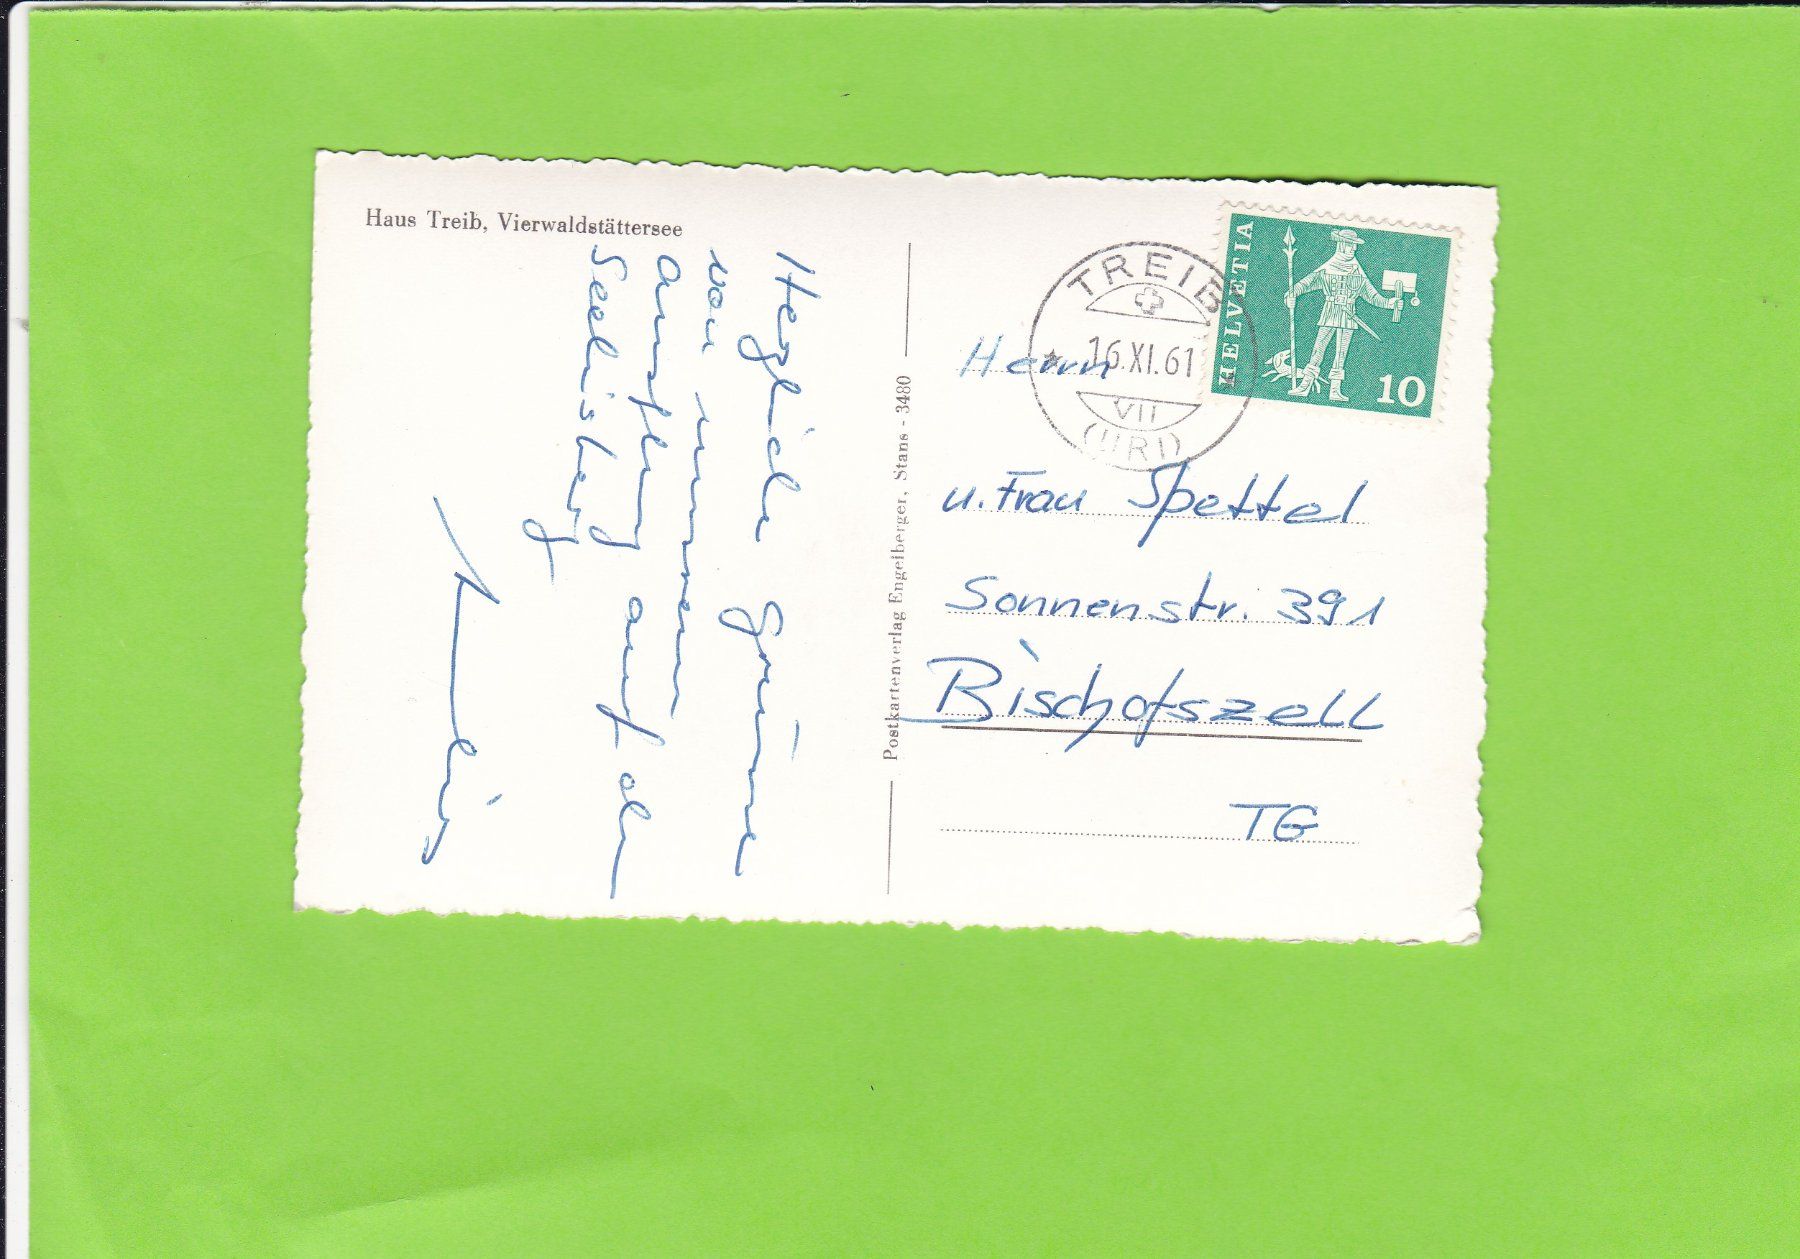 Haus Treib, Vierwaldstättersee
Herzliche Grüsse
von unserem
Ausflug auf den
Seelisberg
Postkartenverlag Engelberger, Stans - 3480
TREIB
16.XI.61
VII
(URI)
HELVETIA
10
Herrn
u. Frau Spettel
Sonnenstr. 391
Bischofszell
TG